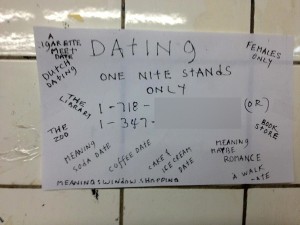 A
CIGARETTE
MEET
DATE
DUTCH
DATING
DATING
FEMALES
ONLY
ONE NITE STANDS
ONLY
THE
LIBRARY
1-718-
1-347-
(OR)
BOOK
STORE
THE
ZOO
MEANING
SODA DATE
COFFEE DATE
CAKE &
ICE CREAM
DATE
MEANING
MAYBE
ROMANCE
A WALK
MEANINGS WINDOW SHOPPING